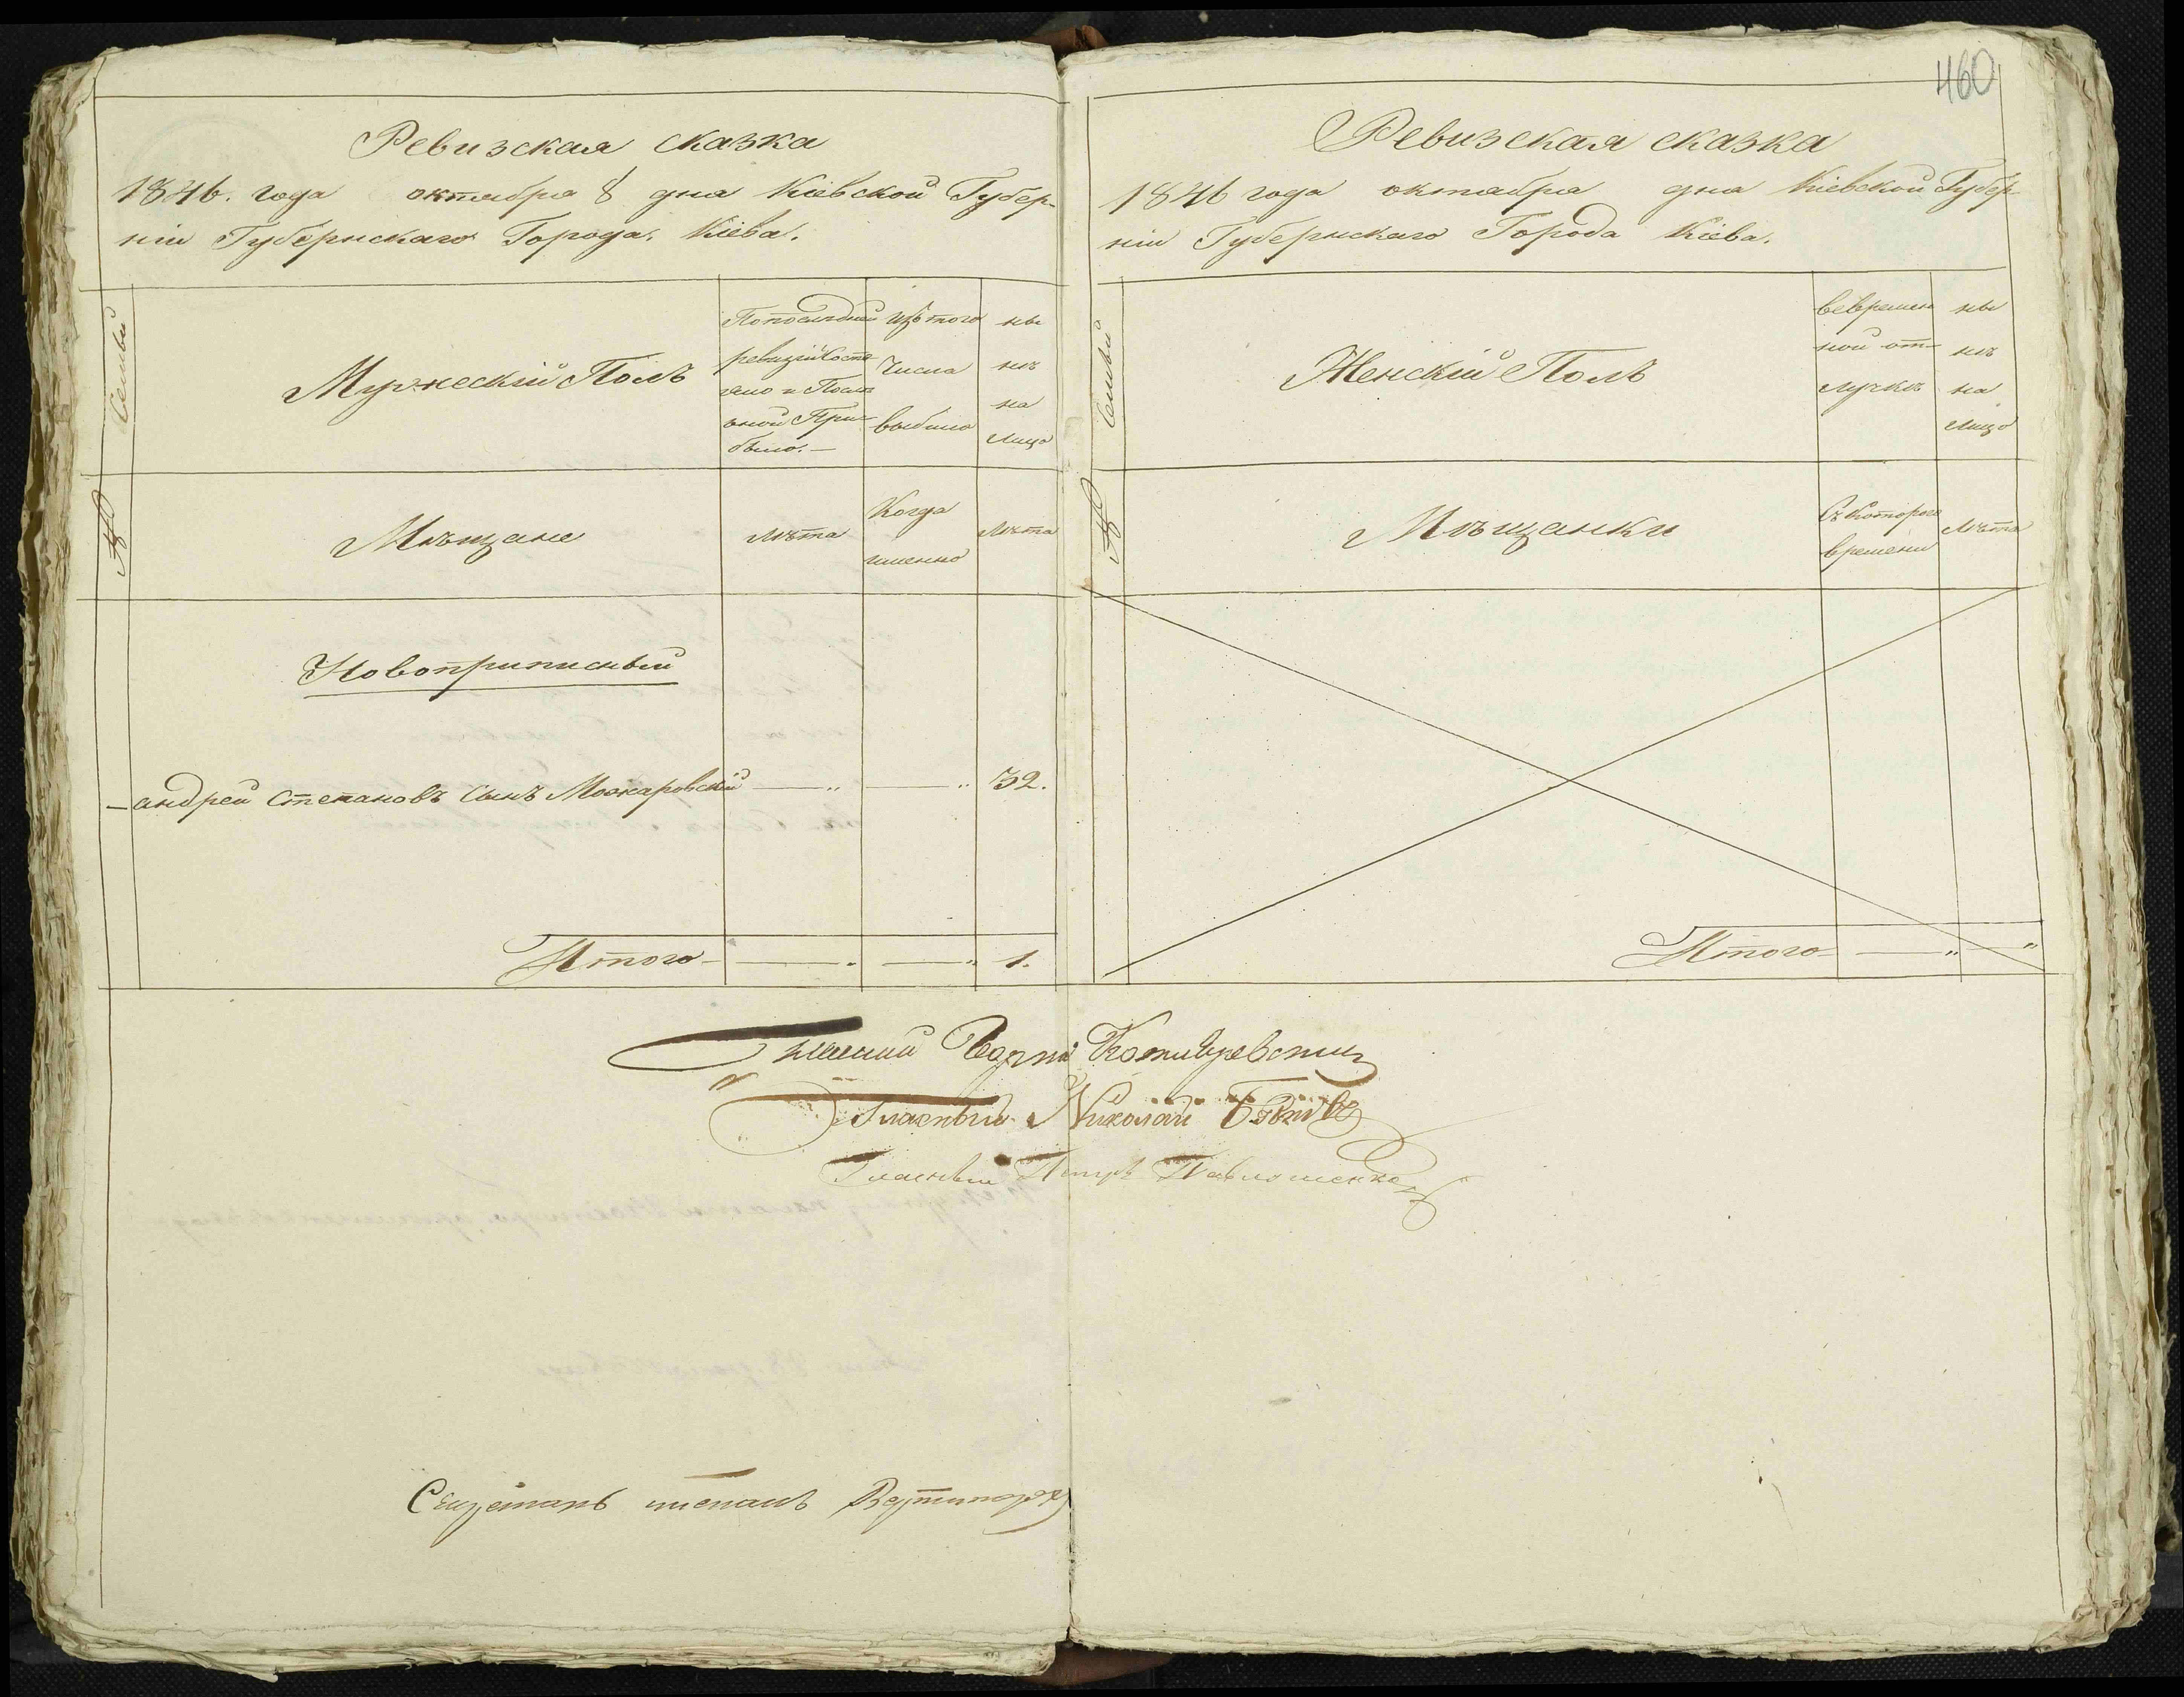 460
Ревизская сказка
1846. года октября 8 дня Кіевской Губер-
ніи Губернскаго Города. Кіева.
Семьи
Мужескій Полъ
Попоследней
ревизіи Состо
яло и После
оной При-
было. —
Изъ того
Числа
выбыло
ны
нѣ
на
лицо
№
Мѣщане
Лѣта
Когда
именно
Лѣта
Новоприписный
— андрей Степановъ Сынъ Мокаровскій — „ — „ 32.
Итого — — „ — „ 1.
Ревизская сказка
1846 года октября дня Кіевской Губер-
ніи Губернскаго Города Кіева.
Семьи
Женскій Полъ
вовремен
ной от-
лучкѣ
ны
нѣ
на
лицо
№
Мѣщанки
Съ Котораго
времени
Лѣта
Итого — — „ — „
Гласный Николай
Гласный Петръ Павлошенко
Секретарь